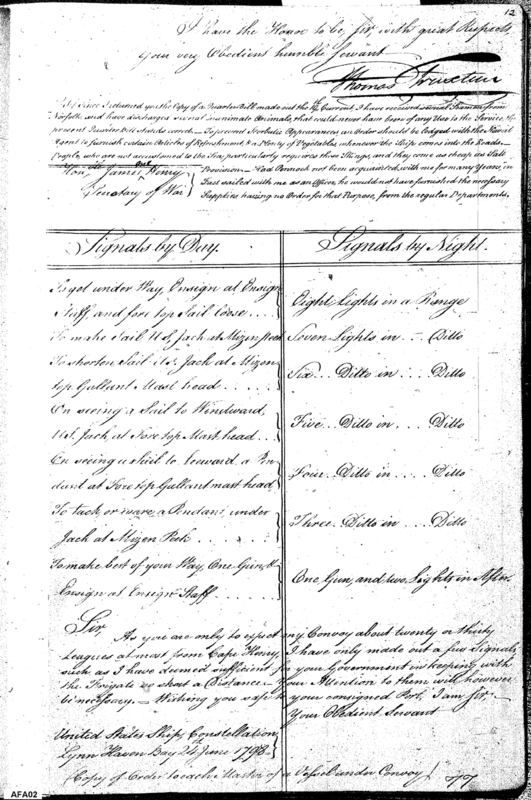 12
I have the Honor to be, Sir, with great Respect,
Your very Obedient humble Servant
Thomas Truxtun
Since I returned you the Copy of a Quarter Bill made out the Current, I have received several Seamen from
Norfolk and have discharged several inanimate Animals, that could never have been of any Use to the Service, the
present Quarter Bill stands correct. To prevent Scorbutic Appearances, an Order should be lodged with the Naval
Agent to furnish certain Articles of Refreshment, & a Plenty of Vegetables whenever the Ship comes into the Roads.
People, who are not accustomed to the Sea, particularly require these Things, and they come as cheap as Salt
Provision. Had Pennock not been acquainted with me for many Years, in
fact sailed with me as an Officer, he would not have furnished the necessary
Supplies having no Order for that Purpose, from the regular Departments.
Honble. James McHenry
Secretary of War
Signals by Day. Signals by Night.
To get under Way, Ensign at Ensign
Staff, and fore top Sail loose . . . Eight Lights in a Range
To make Sail U S. Jack at Mizen Peek Seven Lights in . . . Ditto
To shorten Sail U S. Jack at Mizen
top Gallant Mast head . . . . Six . . . Ditto in . . . Ditto
On seeing a Sail to Windward,
U S. Jack at Fore top Mast head . . . Five . . Ditto in . . . Ditto
On seeing a Sail to Leeward, a Pen
dant at Fore top Gallant mast head Four . . Ditto in . . . . Ditto
To tack or ware, a Pendant, under
Jack at Mizen Peek . . . . . . . Three . . Ditto in . . . Ditto
To make best of your Way, One Gun, &
Ensign at Ensign Staff . . . . . One Gun, and two Lights in After
Sir,
As you are only to expect my Convoy about twenty or thirty
Leagues at most from Cape Henry, I have only made out a few Signals,
such, as I have deemed sufficient for your Government in keeping with
the Frigate so short a Distance. Your Attention to them will however
be necessary. Wishing you safe to your consigned Port, I am Sir
Your Obedient Servant
United States Ship Constellation
Lynn Haven Bay 24 June 1798.
(Copy of Order to each Master of a Vessel under Convoy) TT
AFA02